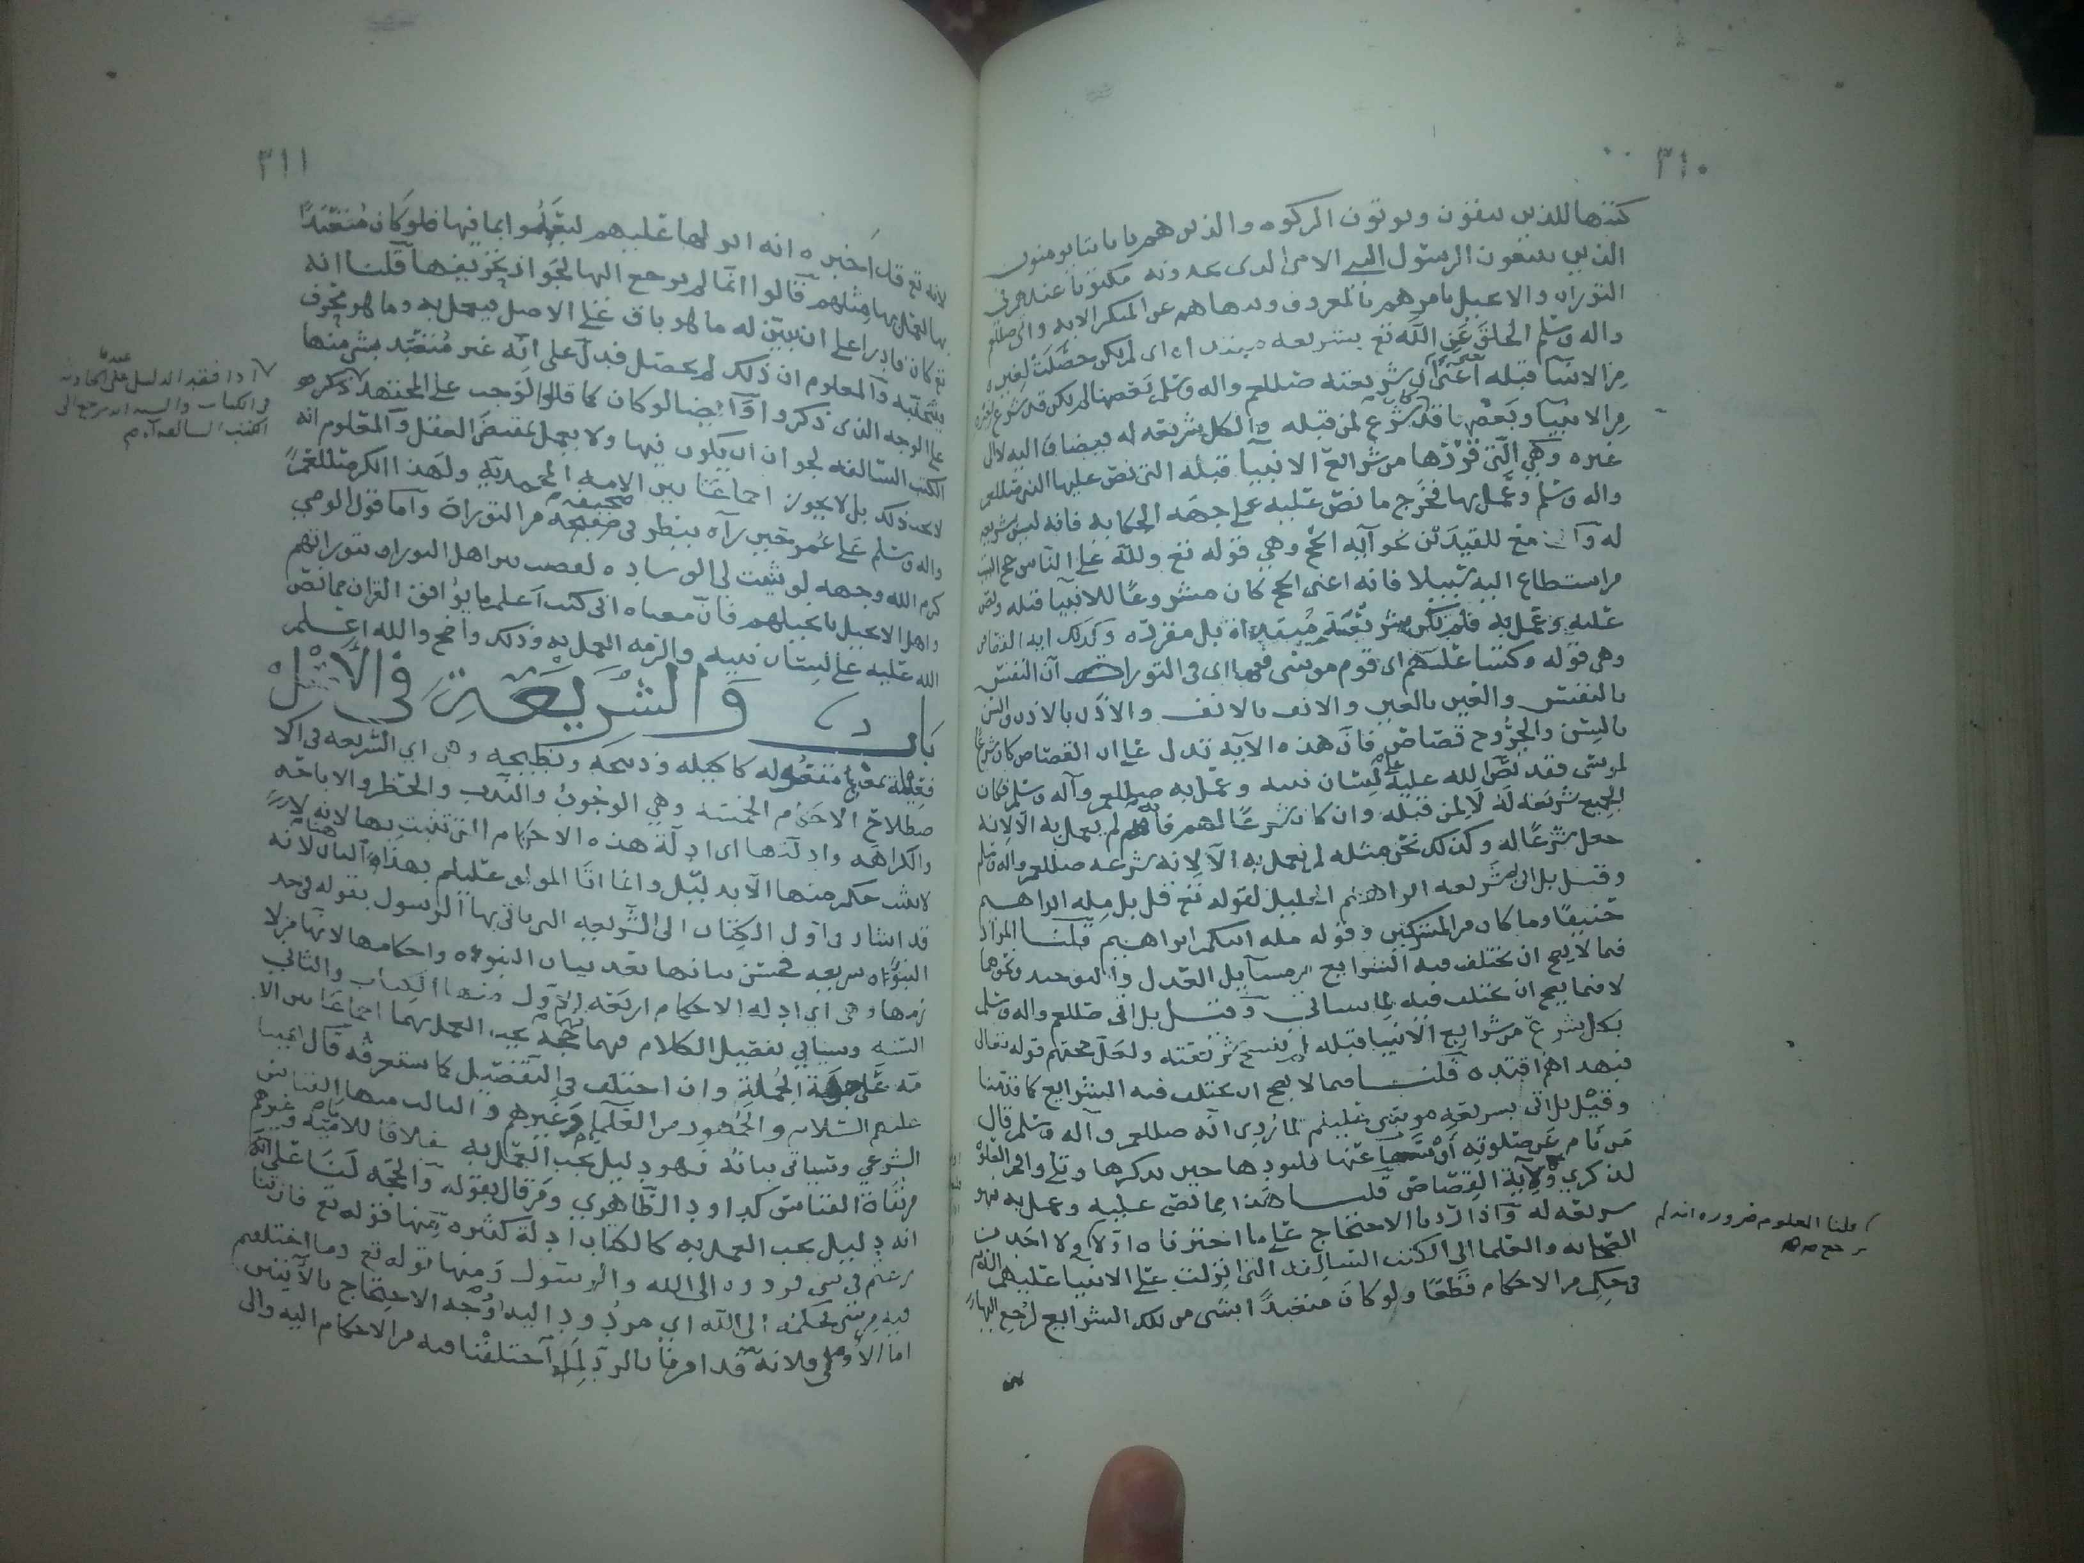 ٣١٠
كتبها للذين يتقون ويوتون الزكوه والذين هم باياتنا يومنون
الذين يتبعون الرسول النبي الامي الذي يجدونه مكتوبا عندهم في
التوراه والانجيل يامرهم بالمعروف وينهاهم عن المنكر الايه
واله وسلم الخلق عن الله تع بشريعه مبتداه اي لم يكن حصلت لغيره
من الانبيا قبله اعني ان شريعته صللعم واله وسلم بعضها لم يكن قد شرع لغيره
من الانبيا وبعضها قد كان شرع لمن قبله والكل شريعه له فيضاف اليه لا الى
غيره وهي التي قررها من شرائع الانبيا قبله التي نص عليها النبي صللعم
واله وسلم وعمل بها فخرج ما نص عليه على جهه الحكايه فانه ليس شريعه
له للقيدين نحو آيه الحج وهي قوله تع ولله على الناس حج البيت
من استطاع اليه سبيلا فانه اعني الحج كان مشروعا للانبيا قبله ونص
عليه وعمل به فلم تكن شريعته مبتداة بل مقررة وكذلك ايه القصاص
وهي قوله وكتبنا عليهم اي قوم موسى فيها اي في التوراة ان النفس
بالنفس والعين بالعين والانف بالانف والاذن بالاذن والسن
بالسن والجروح قصاص فان هذه الآيه تدل على ان القصاص كان شرعا
لموسى فقد نص الله عليه على لسان نبيه وعمل به صللعم وآله وسلم فكان
الجميع شريعه له لا لمن قبله وان كان شرعا لهم فانه لم يعمل به الا لانه
جعل شرعا له وكذلك نحن مثله لم نعمل به الا لانه شرعه صللعم واله وسلم
وقيل بل اتى بشريعه ابراهيم الخليل لقوله تع قل بل مله ابراهيم
حنيفا وما كان من المشركين وقوله مله ابيكم ابراهيم قلنا المراد
فيما لا يصح ان تختلف فيه الشرايع من مسايل العدل والتوحيد ونحوها
لا فيما يصح ان تختلف فيه لما سياتي وقيل بل اتى صللعم واله وسلم
بكل شرع من شرايع الانبيا قبله لم تنسخ شريعته ولعل حجتهم قوله تعالى
فبهداهم اقتده قلنا فيما لا يصح ان تختلف فيه الشرايع كما قدمنا
وقيل بل اتى بشريعه موسى عليلم لما روي انه صللعم وآله وسلم قال
من نام عن صلوته أو نسيها عنها فليودها حين يذكرها وتلا واقم الصلاة
لذكري ولآية القصاص قلنا هذا مما نص عليه وعمل به فهو
شريعه له واذا اردنا الاحتجاج على ما اخترناه اولا ولا احد من
الصحابه والعلما الى الكتب السالفه التي انزلت على الانبيا عليهم السلام
في حكم من الاحكام قطعا ولو كان متعبدا بشي من تلك الشرايع لرجع اليها
قلنا المعلوم ضروره انه لم
يرجع
٣١١
لانه تع قد اخبره انه انزلها عليهم ليعملوا بما فيها فلو كان متعبدا
بها لعمل بها مثلهم قالوا انما لم يرجع اليها لجواز تحريفها قلنا انه
تع كان قادرا على ان يبين له ما هو باق على الاصل فيعمل به وما هو محرف
فيجتنبه والمعلوم ان ذلك لم يحصل فدل على انه غير متعبد بشي منها
على الوجه الذي ذكروا وايضا لو كان كما قالوا لوجب على المجتهد
الكتب السالفه لجواز ان يكون فيها ولا يعمل بمقتضى العقل والمعلوم انه
لا يجب ذلك بل لا يجوز اجماعا بين الامه المحمديه ولهذا انكر صللعم
واله وسلم على عمر حين رآه ينظر في صحيفه من التوراة واما قول الوصي
كرم الله وجهه لو ثنيت لي الوساده لقضيت بين اهل التوراه بتوراتهم
واهل الانجيل بانجيلهم فان معناه اني كنت اعلم ما يوافق القران مما نص
الله عليه على لسان نبيه والزمه العمل به وذلك واضح والله اعلم
باب والشريعة في الاصل
فعيلة بمعنى مفعوله كاكيله وذبيحه ونطيحه وهي اي الشريعه في الا
صطلاح الاحكام الخمسه وهي الوجوب والندب والحظر والاباحه
والكراهه وادلتها اي ادلة هذه الاحكام التي تثبت بها لانه
لا يثبت حكم منها الا بدليل وانما اتا المولى عليلم بهذا الباب هنا لانه
قد اشار في اول الكتاب الى الشريعه التي ياتي بها الرسول بقوله في حد
النبوة شريعه فحسن بيانها بعد بيان النبوه واحكامها لانها من لا
زمها وهي اي ادله الاحكام اربعه الاول منها الكتاب والثاني
السنه وسياتي تفصيل الكلام فيهما فهما حجه يجب العمل بهما اجماعا بين الا
مه على جهة الجملة وان اختلف في التفصيل كما ستعرفه قال ائمتنا
عليهم السلام والجمهور من العلما وغيرهم والثالث منها القياس
الشرعي وسياتي بيانه فهو دليل يجب العمل به خلافا للاماميه وغيرهم
من نفاة القياس كداود الظاهري ومن قال بقوله والحجه لنا على انه
انه دليل يجب العمل به كالكتاب ادلة كثيره منها قوله تع فان تنا
زعتم في شي فردوه الى الله والرسول ومنها قوله تع وما اختلفتم
فيه من شي فحكمه الى الله اي مردود اليه ووجه الاحتجاج بالآيتين
اما الاولى فلانه قد امرنا بالرد لما اختلفنا فيه من الاحكام اليه والى
اذا فقد الدليل على الحادثه
في الكتاب والسنه ان يرجع الى
الكتب السالفه